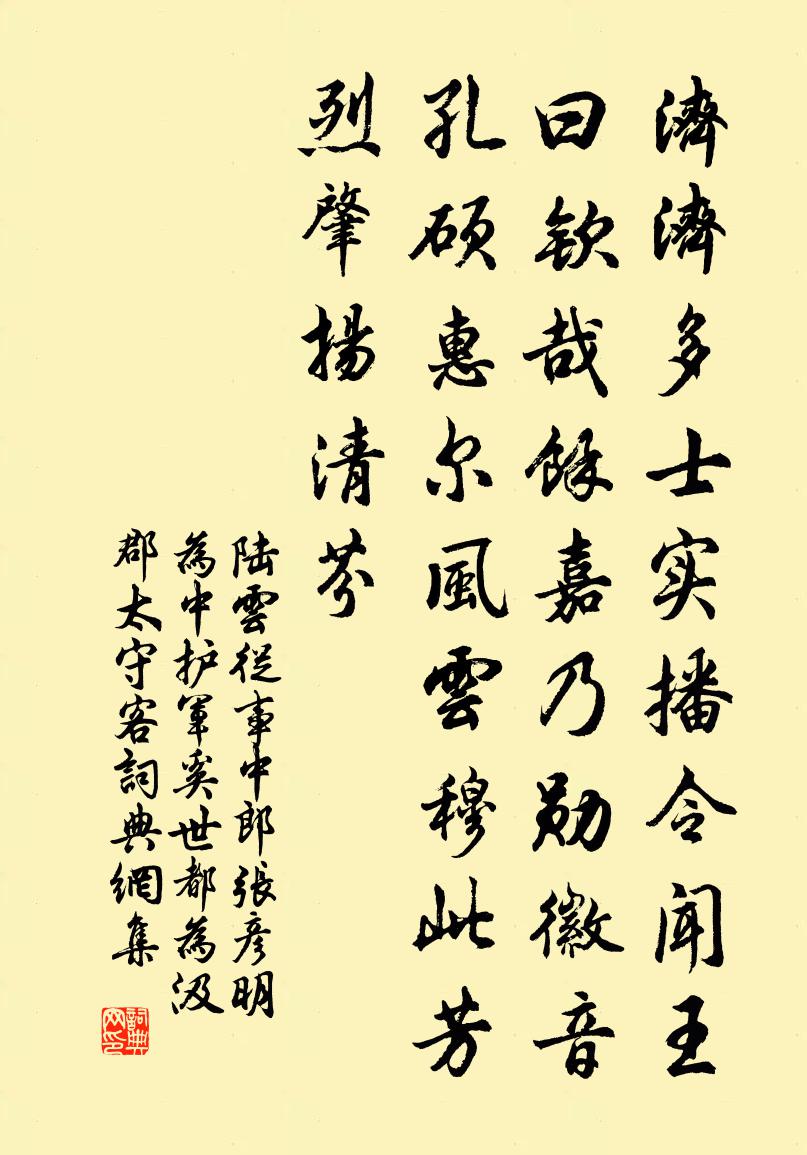 濟濟多士实播令闻王
曰欽哉餘嘉乃勋徽音
孔硕惠尔風雲穆此芳
烈肇揚清芬
陆雲從事中郎張彦明
為中护軍奚世都為汲
郡太守客詞典網集
詞典
网印